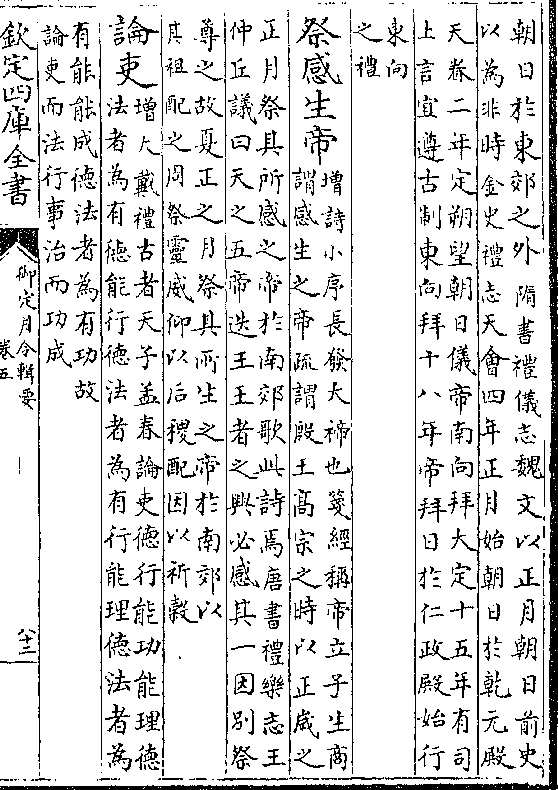 朝日於東郊之外隋書禮儀志魏文以正月朝日前史
以為非時金史禮志天會四年正月始朝日於乾元殿
天眷二年定朔望朝日儀帝南向拜大定十五年有司
上言宜遵古制東向拜十八年帝拜日於仁政殿始行
東向
之禮
祭感生帝增詩小序長發大禘也箋經稱帝立子生商
謂感生之帝疏謂殷王高宗之時以正歲之
正月祭其所感之帝於南郊歌此詩焉唐書禮樂志王
仲丘議曰天之五帝迭王王者之興必感其一因別祭
尊之故夏正之月祭其所生之帝於南郊以
其祖配之周祭靈威仰以后稷配因以祈穀
論吏增大戴禮古者天子孟春論吏德行能功能理德
法者為有德能行德法者為有行能理德法者為
有能能成德法者為有功故
論吏而法行事治而功成
欽定四庫全書
御定月令輯要
卷五